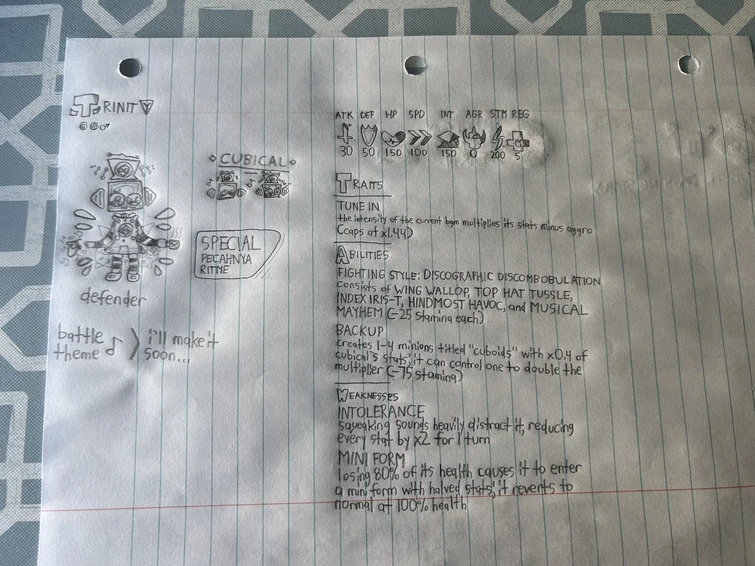 TRINITY
CUBICAL
SPECIAL
PECAHNYA
RITME
defender
battle
theme
i'll make it
soon...
ATK DEF HP SPD INT AGR STM REG
30 50 150 100 150 0 200 5
TRAITS
TUNE IN
the intensity of the current bgm multiplies its stats minus aggro
(caps at x1.44)
ABILITIES
FIGHTING STYLE: DISCOGRAPHIC DISCOMBOBULATION
consists of WING WALLOP, TOP HAT TUSSLE,
INDEX IRIS-T, HINDMOST HAVOC, and MUSICAL
MAYHEM (-25 stamina each)
BACKUP
creates 1-4 minions titled "cuboids" with x0.4 of
cubical's stats; it can control one to double the
multiplier (-75 stamina)
WEAKNESSES
INTOLERANCE
squeaking sounds heavily distract it, reducing
every stat by x2 for 1 turn
MINI FORM
losing 80% of its health causes it to enter
a mini form with halved stats; it reverts to
normal at 100% health